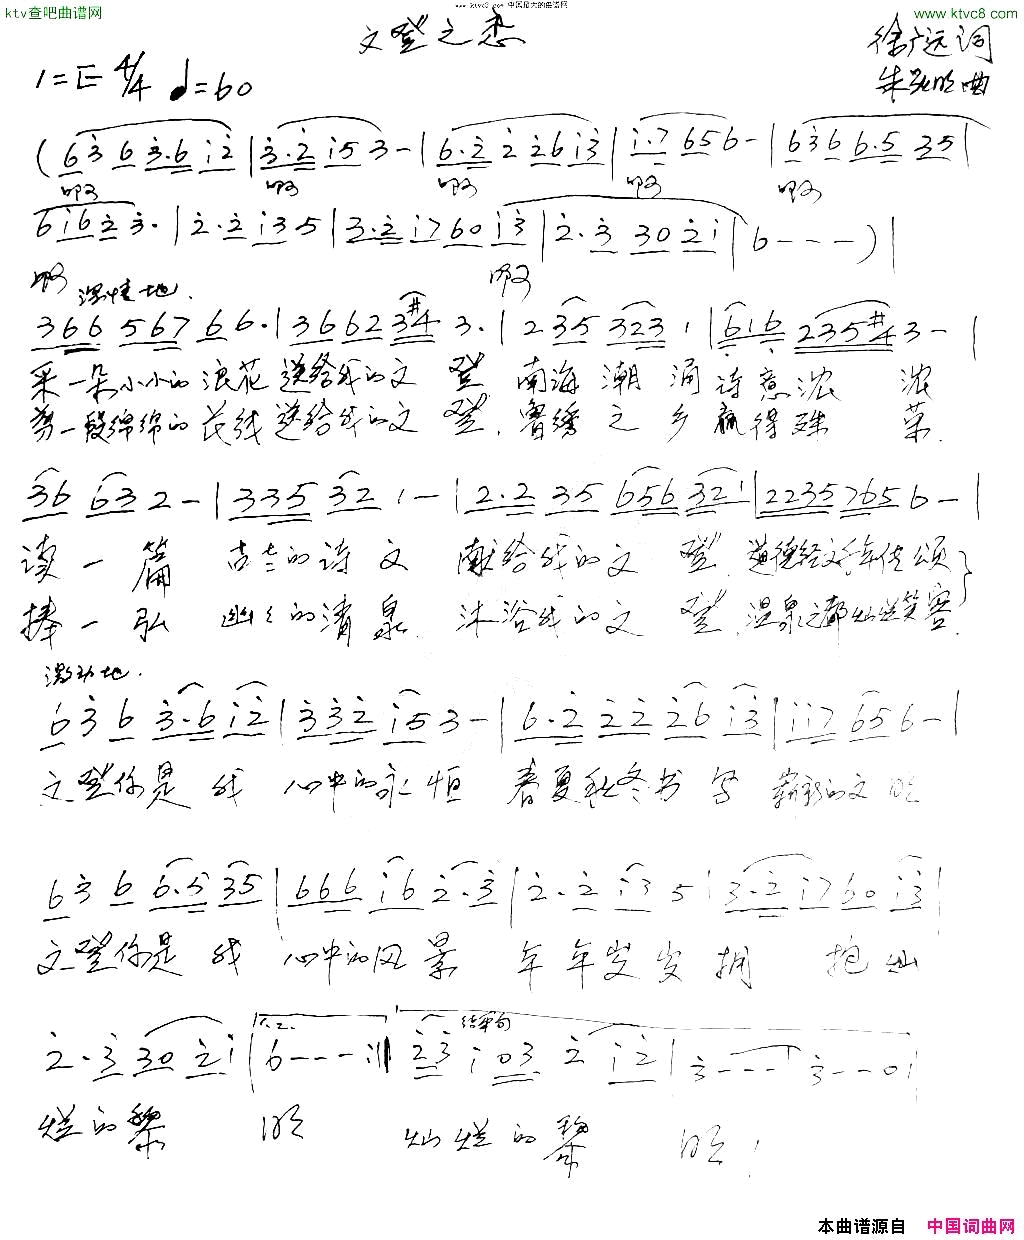 www.ktvc8.com 中国最大的曲谱网
ktv查吧曲谱网
www.ktvc8.com
文登之恋
徐广远词
1=E 4/4 ♩=60
曲
(6 3 6 3·6 i 2 | 3·2 i 5 3 - | 6·2 2 2 6 i 3 | i·7 6 5 6 - | 6 3 6 6·5 3 5 |
啊 啊 啊 啊 啊
6 i 6 2 3· | 2·2 i 3 5 | 3·2 i 7 6 0 i 3 | 2·3 3 0 2 i | 6 - - - ) |
啊 啊
深情地.
3 6 6 5 6 7 6 6· | 3 6 6 2 3 #4 3· | 2 3 5 3 2 3 1 | 6 1 6 2 3 5 #4 3 - |
采一朵小小的浪花送给我的文登 南海潮涌诗意浓 浓
剪一段绵绵的花线送给我的文登,鲁绣之乡赢得殊 荣.
3 6 6 3 2 - | 3 3 5 3 2 1 - | 2·2 3 5 6 5 6 3 2 1 | 2 2 3 5 7 6 5 6 - |
读一篇 古老的诗文 献给我的文登,道德经文千年传颂
捧一弘 幽幽的清泉.沐浴我的文登,温泉之都灿烂笑容.
激动地.
6 3 6 3·6 i 2 | 3 3 2 i 5 3 - | 6·2 2 2 2 6 i 3 | i i 7 6 5 6 - |
文登你是我 心中的永恒 春夏秋冬书写 崭新的文明
6 3 6 6·5 3 5 | 6 6 6 i 6 2·3 | 2·2 i 3 5 | 3·2 i 7 6 0 i 3 |
文登你是我 心中的风景 年年岁岁拥 抱灿
2·3 3 0 2 i | 1.2. 6 - - - :‖ 结束句 2 3 i 0 3 2 i 2 | 3 - - - | 3 - - 0 |
烂的黎 明 灿烂的黎 明!
本曲谱源自 中国词曲网